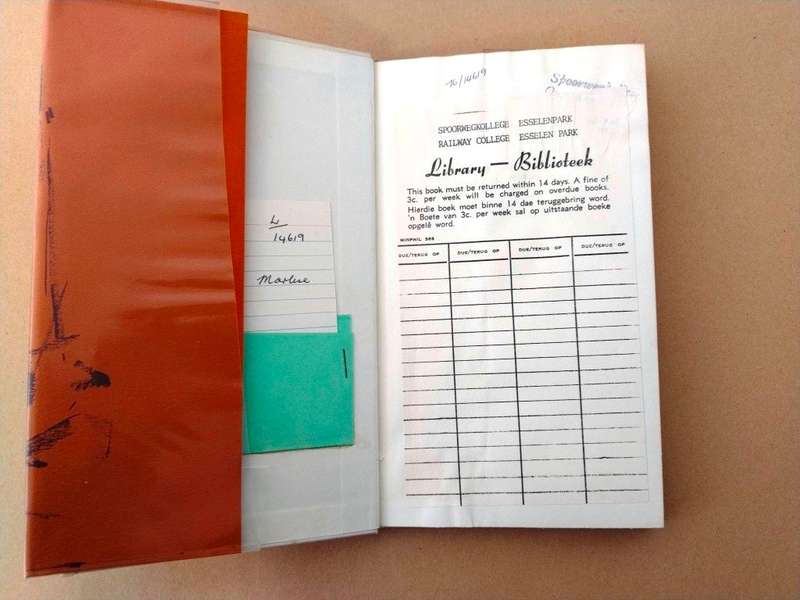 L
14619
Marlene
14619
SPOORWEGKOLLEGE ESSELENPARK
RAILWAY COLLEGE ESSELEN PARK
Library — Biblioteek
This book must be returned within 14 days. A fine of
3c. per week will be charged on overdue books.
Hierdie boek moet binne 14 dae teruggebring word.
'n Boete van 3c. per week sal op uitstaande boeke
opgelê word.
WINPHIL 388
DUE/TERUG OP DUE/TERUG OP DUE/TERUG OP DUE/TERUG OP